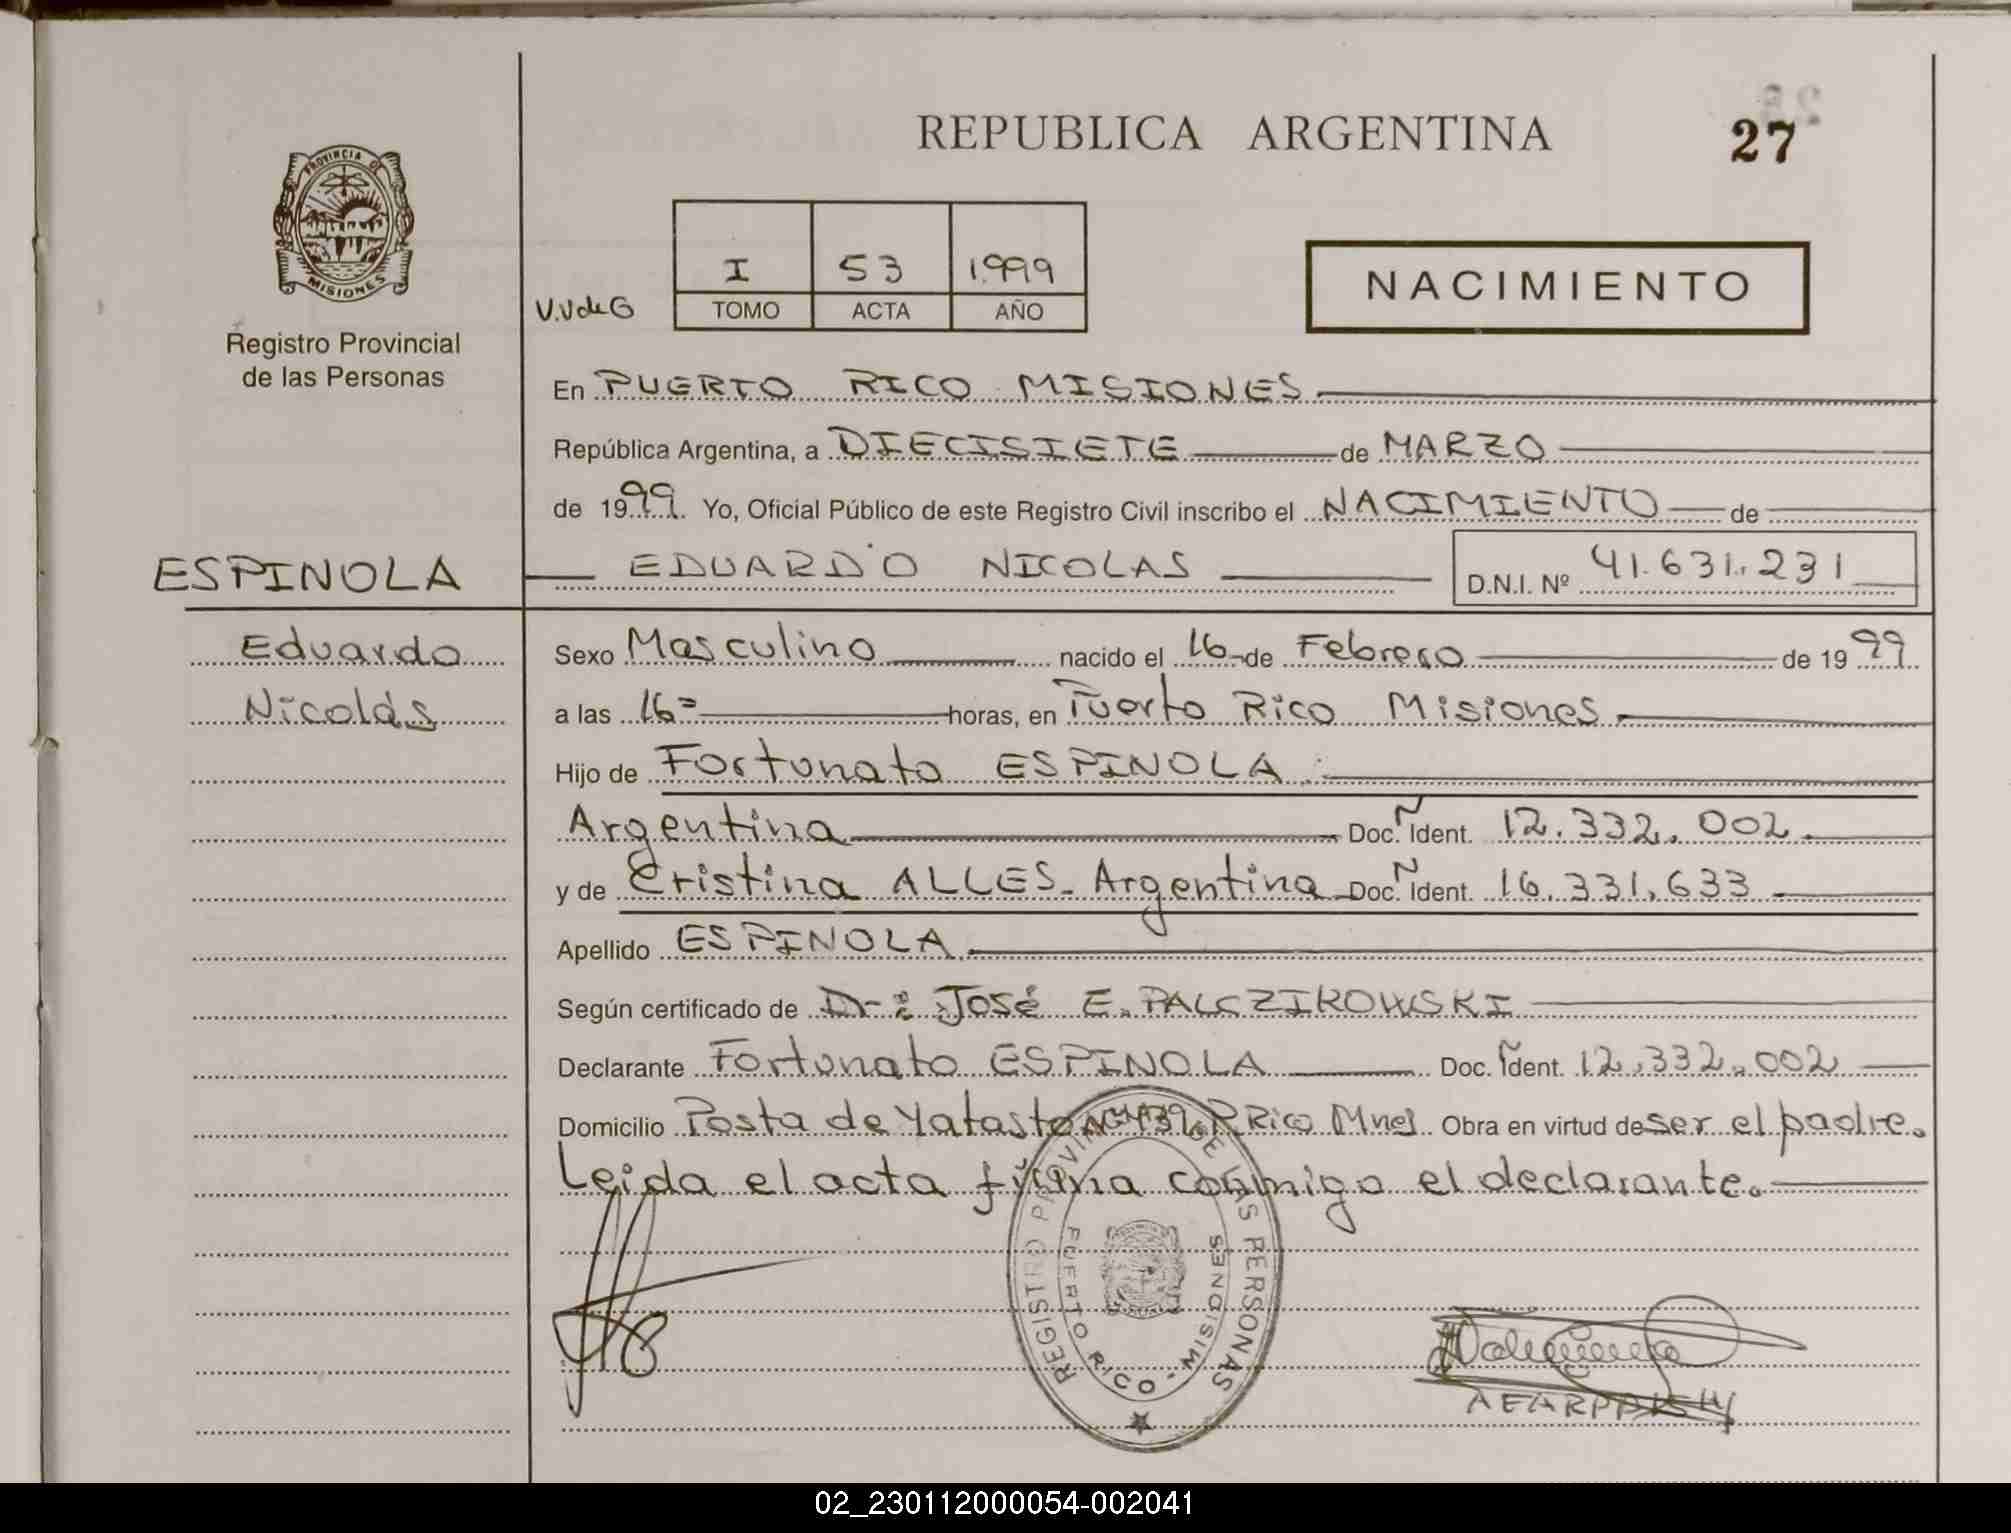 REPUBLICA ARGENTINA
27
PROVINCIA DE MISIONES
Registro Provincial
de las Personas
V.V de G
I 53 1.999
TOMO ACTA AÑO
NACIMIENTO
En PUERTO RICO MISIONES
República Argentina, a DIECISIETE de MARZO
de 1999. Yo, Oficial Público de este Registro Civil inscribo el NACIMIENTO de
ESPINOLA
EDUARDO NICOLAS
D.N.I. Nº 41.631.231
Eduardo
Nicolás
Sexo Masculino nacido el 16 de Febrero de 1999
a las 16= horas, en Puerto Rico Misiones
Hijo de Fortunato ESPINOLA
Argentina Doc. Ident. 12.332.002
y de Cristina ALLES - Argentina Doc. Ident. 16.331.633
Apellido ESPINOLA
Según certificado de Dr: José E. PALCZIKOWSKI
Declarante Fortunato ESPINOLA Doc. Ident. 12.332.002
Domicilio Posta de Yatasto Nº 439 P Rico Mnes Obra en virtud de ser el padre.
Leida el acta firma conmigo el declarante.
REGISTRO PROVINCIAL DE LAS PERSONAS
PUERTO RICO - MISIONES
02_230112000054-002041